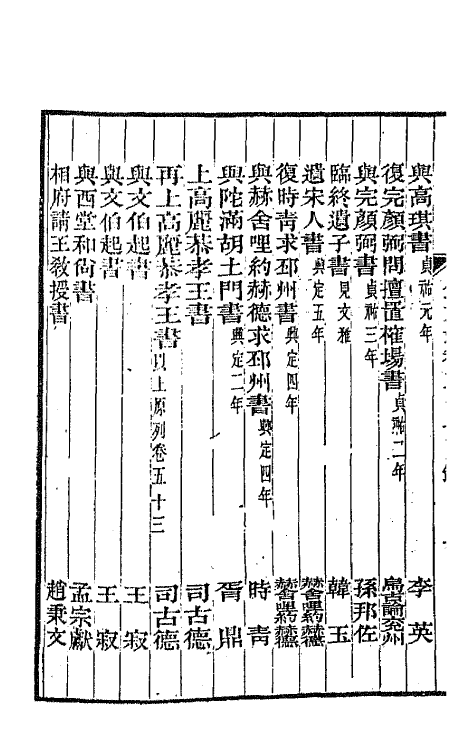 與高琪書 貞祐元年 李英
復完顏弼問擅置榷場書 貞祐二年 烏古論兗州
與完顏弼書 貞祐三年 孫邦佐
臨終遺子書 見文雅 韓玉
遺宋人書 興定五年
復時青求邳州書 興定四年
與赫舍哩約赫德求邳州書 興定四年 時青
與陀滿胡土門書 興定二年 胥鼎
上高麗恭孝王書 司古德
再上高麗恭孝王書 以上原列卷五十三 司古德
與文伯起書 王寂
與文伯起書 王寂
與西堂和尙書 孟宗獻
相府請王敎授書 趙秉文